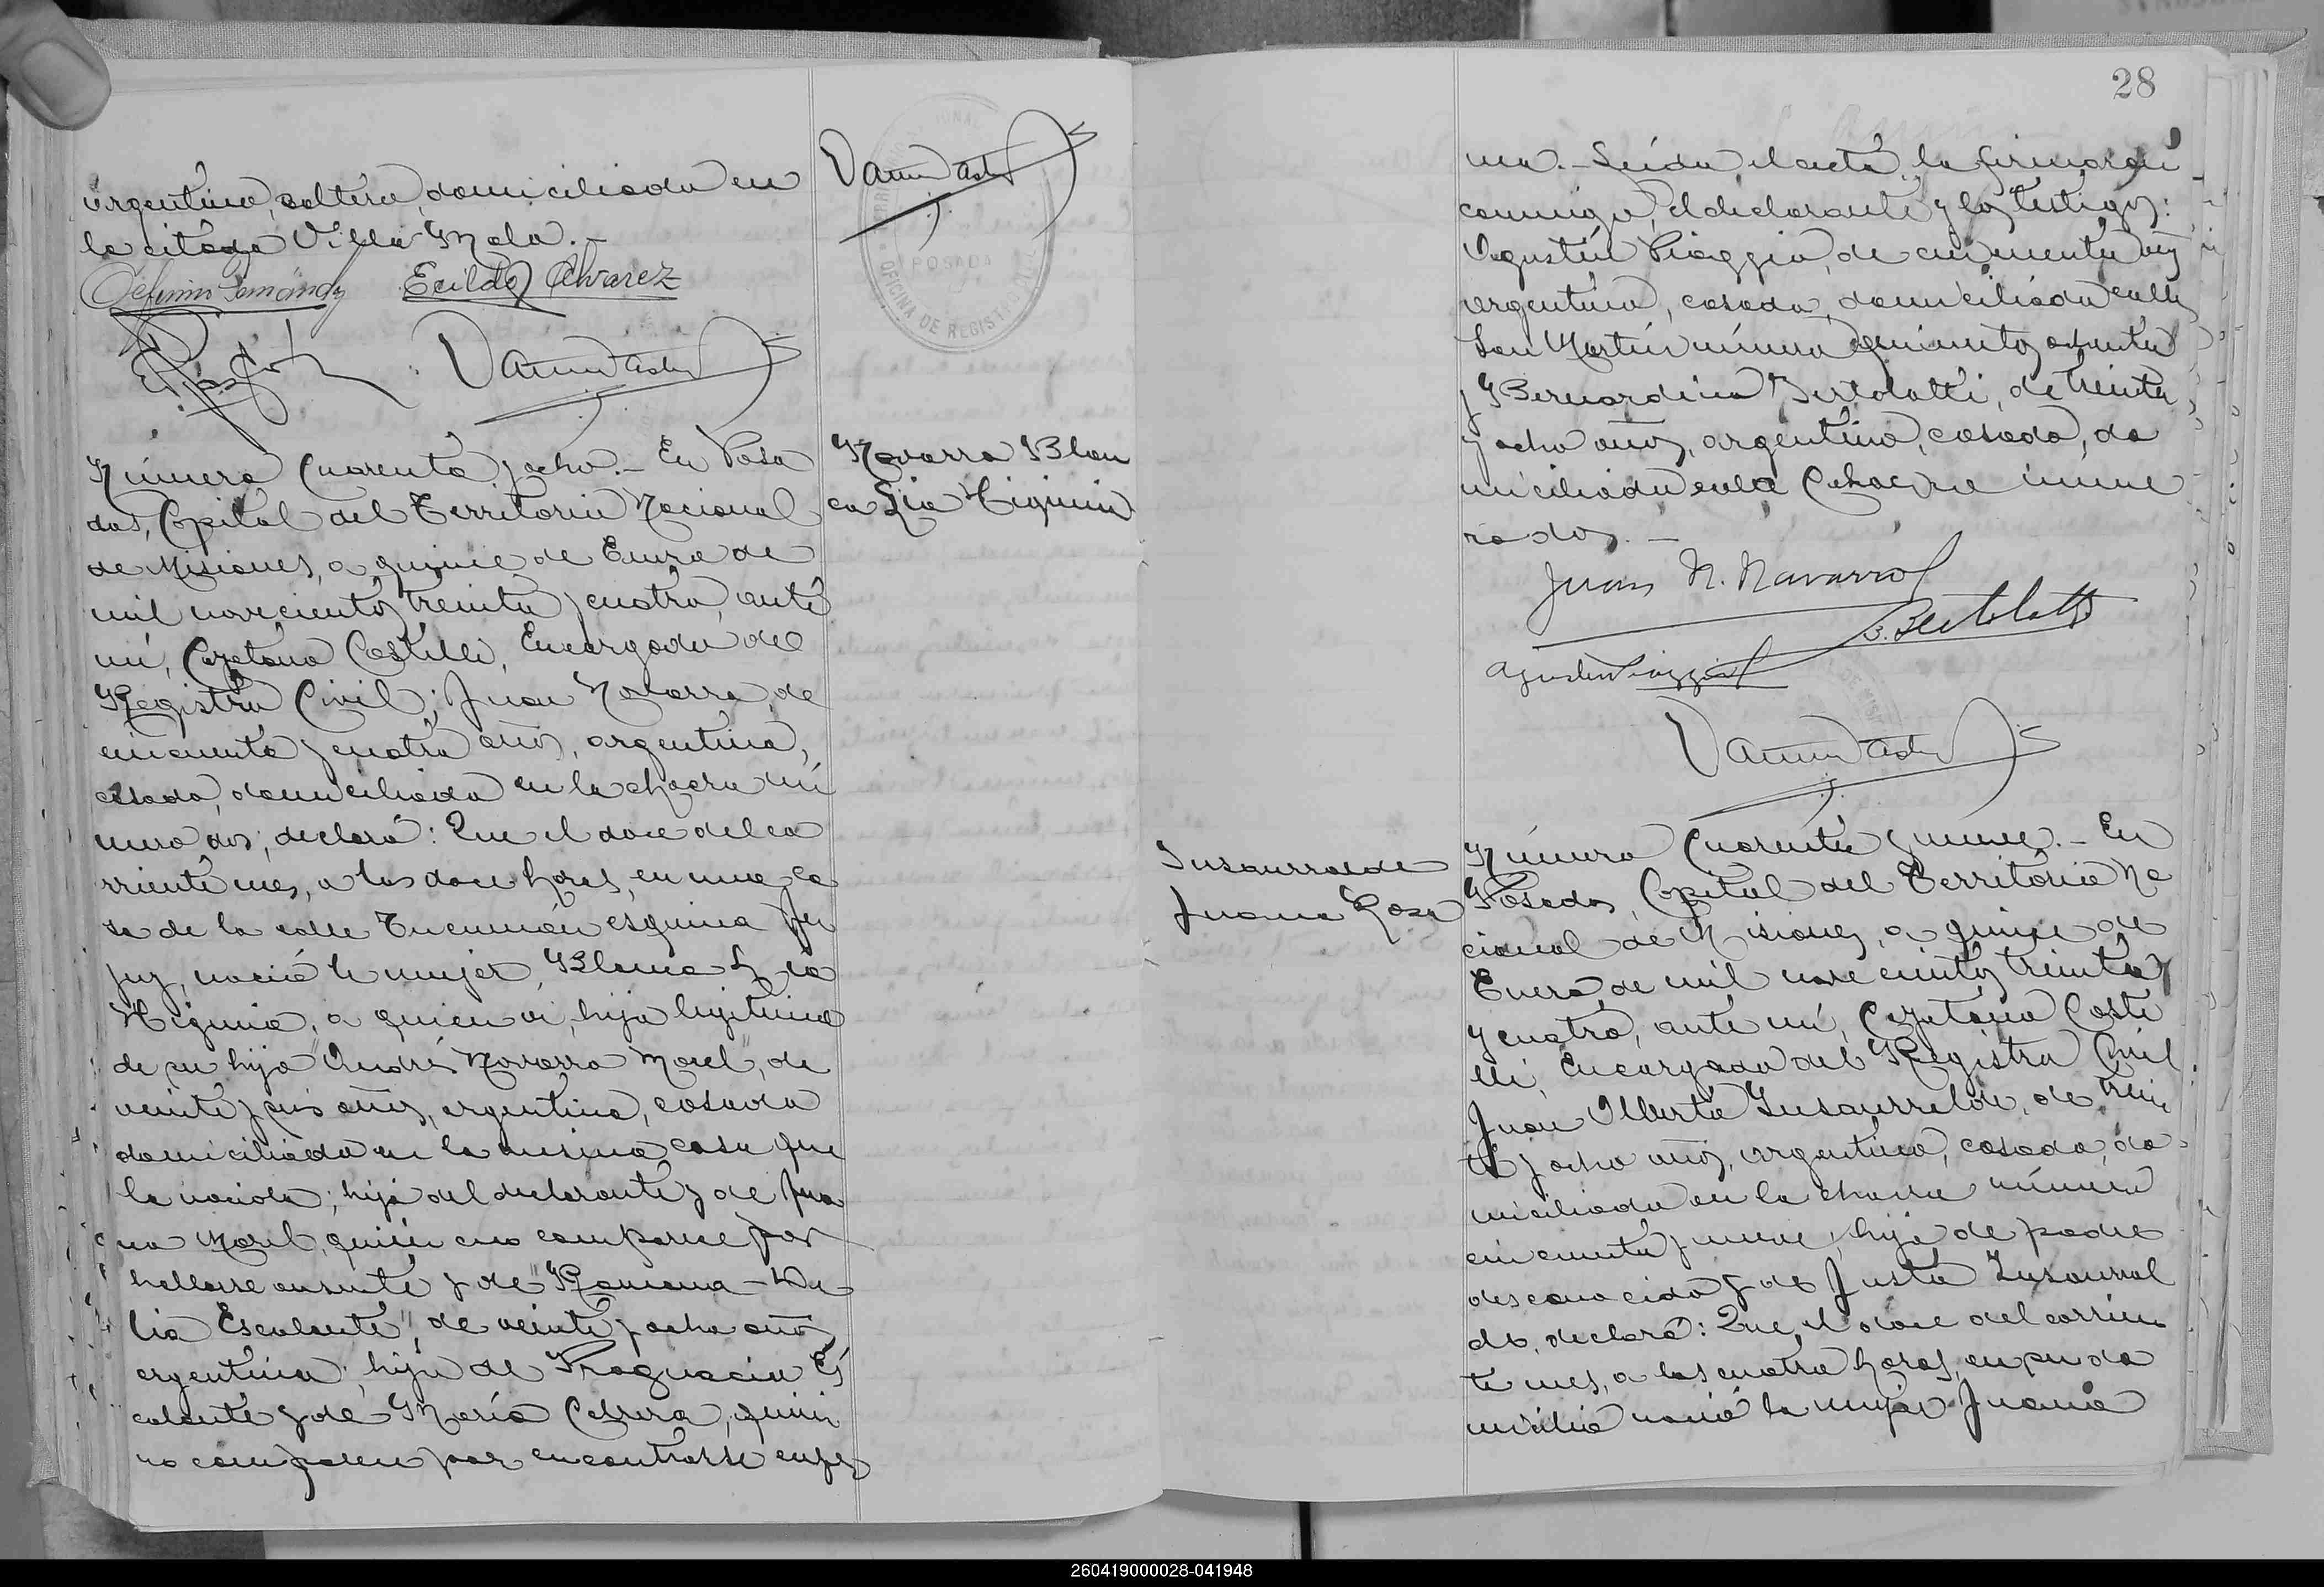 argentino, soltero, domiciliado en
la citada Villa Mala.-
Ecildo Alvarez
Navarro Blan
ca Lia Higinia
Número Cuarenta y ocho.- En Posa
das, Capital del Territorio Nacional
de Misiones, a quince de Enero de
mil novecientos treinta y cuatro, ante
mí, Cayetano Castelli, Encargado del
Registro Civil; Juan Navarro, de
cincuenta y cuatro años, argentino,
casado, domiciliado en la chacra nú
mero dos, declaró: Que el doce del co
rriente mes, a las doce horas, en una ca
sa de la calle Tucumán esquina Ju
juy, nació la mujer, Blanca Lia
Higinia, a quien vi, hija legitima
de su hijo "Andrés Navarro Morel", de
veinte y seis años, argentino, casado
domiciliado en la misma casa que
la nacida; hijo del declarante y de Jua
na Morel, quien no comparece por
hallarse ausente y de "Ramona De
lia Escalante", de veinte y ocho años
argentina, hija de Es
calante y de María Cabrera, quien
no comparece por encontrarse enfer
28
ma.- Leida el acta, la firmaron
conmigo, el declarante y los testigos:
Agustín Piaggio, de cincuenta años
argentino, casado, domiciliado calle
San Martín número quinientos ochenta
y Bernardino Bertolotti, de treinta
y ocho años, argentino, casado, do
miciliado en la Chacra núme
ro dos.-
Juan N. Navarro
B. Bertolotti
Agustin Piaggio
Insaurralde
Juana Rosa
Número Cuarenta y nueve.- En
Posadas, Capital del Territorio Na
cional de Misiones, a quince de
Enero de mil novecientos treinta
y cuatro, ante mí, Cayetano Caste
lli, Encargado del Registro Civil
Juan Alberto Insaurralde, de trein
ta y ocho años, argentino, casado, do
miciliado en la chacra número
cincuenta y nueve, hijo de padre
desconocido y de Justa Insaurral
de, declaró: Que, el doce del corrien
te mes, a las cuatro horas, en su do
micilio nació la mujer Juana
260419000028-041948